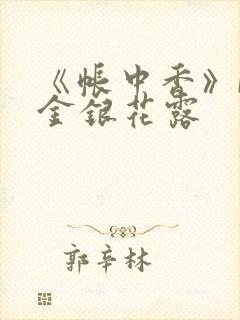 《帐中香》
金银花露
郭辛林